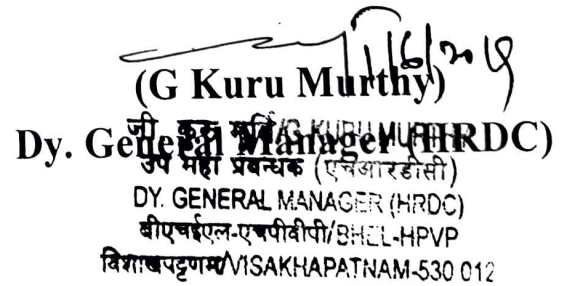 1/6/2019
(G Kuru Murthy)
Dy. General Manager (HRDC)
जी कुरु मूर्ति/G KURU MURTHY
उप महा प्रबन्धक (एचआरडीसी)
DY. GENERAL MANAGER (HRDC)
बीएचईएल-एचपीवीपी/BHEL-HPVP
विशाखपट्टणम/VISAKHAPATNAM-530 012